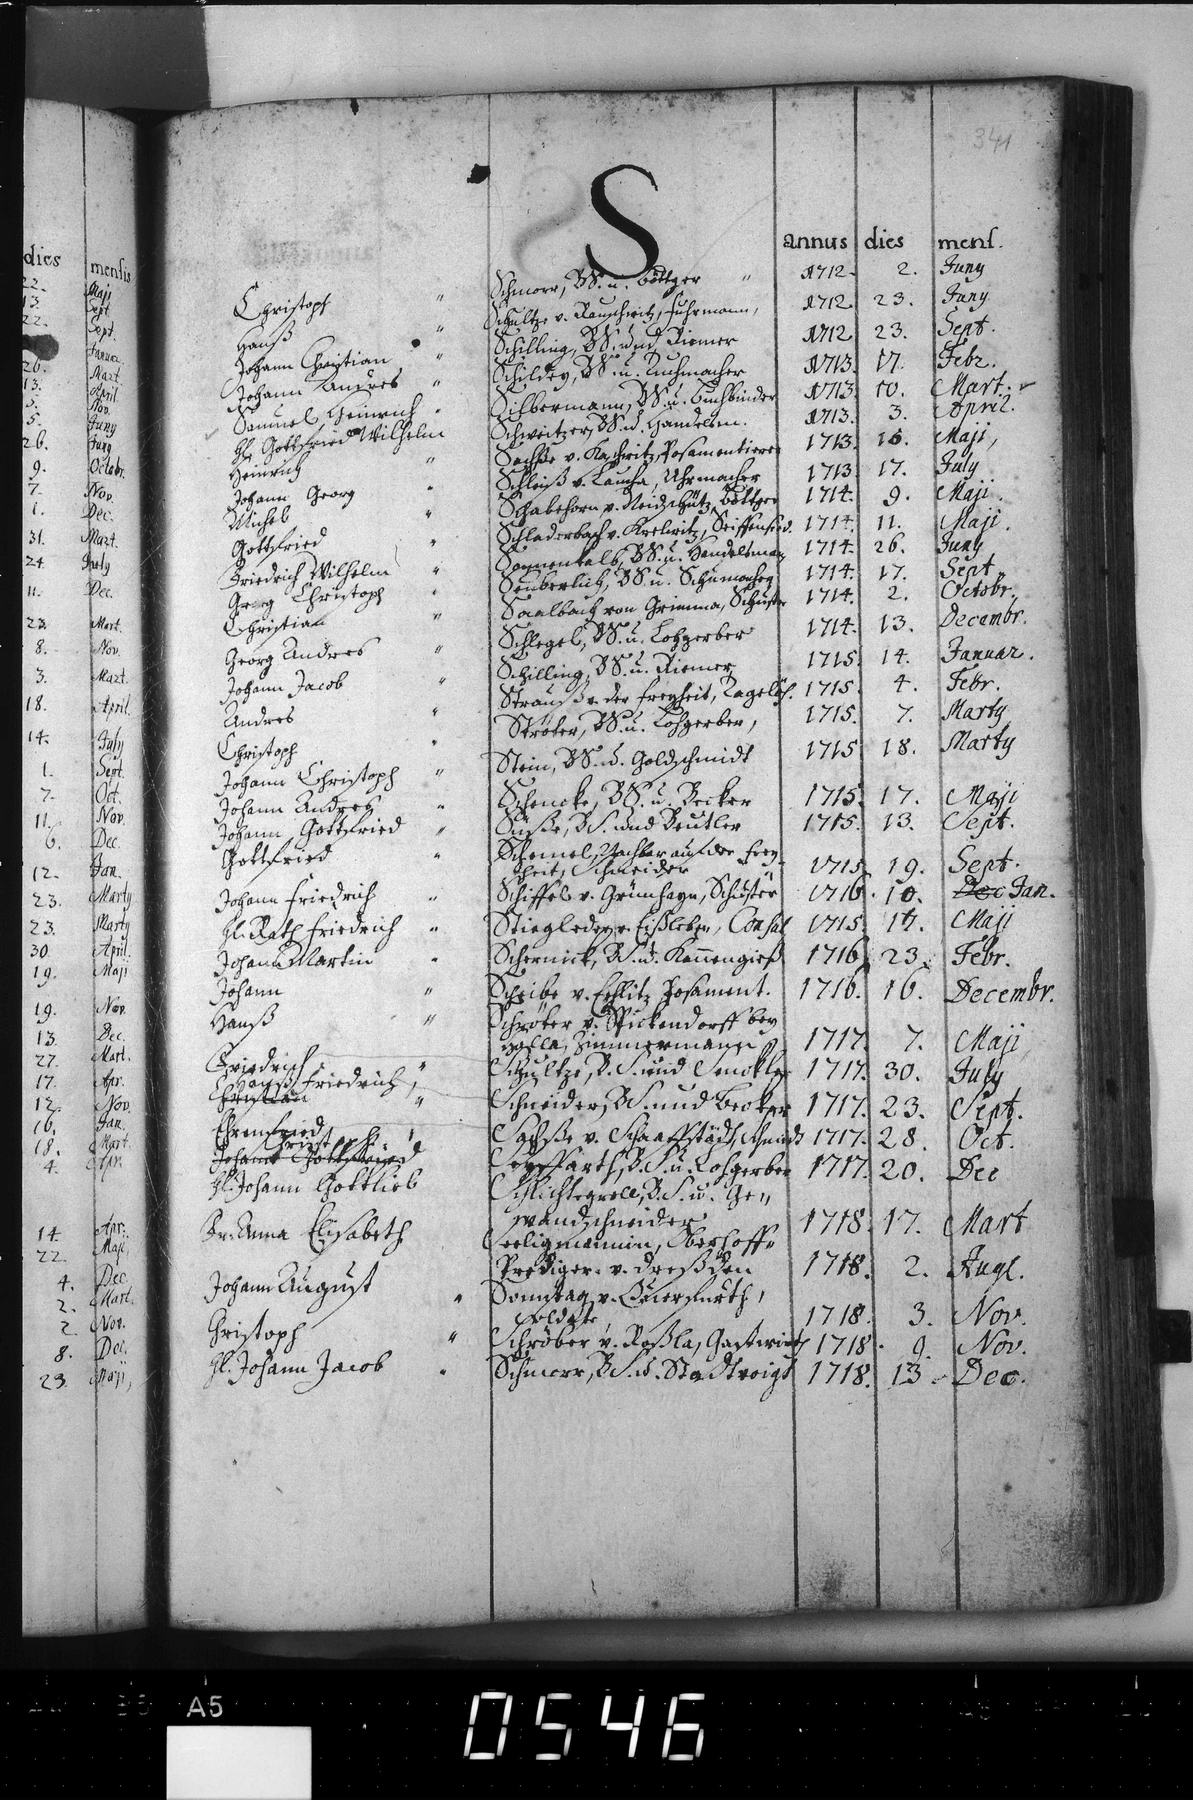 dies mensis
22. Maji
13 Sept.
22. Sept.
Januar.
26. Mart.
13. April
5. Nov.
5. Juny
26. Juny
9. Octobr.
7. Nov.
1. Dec.
31. Mart.
24 July
11. Dec.
23. Mart.
8. Nov.
3. Mart.
18. April.
14. July
1. Sept.
7. Oct.
11. Nov.
6. Dec.
12. Jan.
23. Marty
23. Marty
30 April.
19. Maji
19. Nov.
13. Dec.
27. Mart.
17. Apr.
12. Nov.
16. Jan.
18. Mart.
4. Apr.
14. Apr:
22. Maji
4. Dec
2. Mart.
2. Nov.
8. Dec.
23. Maji,
341
S
annus dies mens.
Christoph " Schmorr, BS. u. Böttger " 1712. 2. Juny
Hanß " Schultze v. Rauschwitz, Fuhrmann, 1712 23. Juny
Johann Christian " Schilling, BS. und Riemer 1712 23. Sept.
Johann Andres " Schilden, BS. u. Tuchmacher 1713. 17. Febr.
Samuel Heinrich " Silbermann, BS. u. Buchbinder 1713. 10. Mart.
H. Gottfried Wilhelm Schweitzer, BS. u. Handelsm. 1713. 3. April.
Heinrich " Sachße v. Posamentierer 1713. 16. Maji,
Johann Georg " Schleiß v. Laucha, Uhrmacher 1713 17. July
Michel " Schabehorn v. Neidschütz Böttger 1714. 9. Maji.
Gottfried " Schladerbach v. Seiffensied. 1714. 11. Maji.
Friedrich Wilhelm " Sonnenkalb, BS. u. Handelsman 1714. 26. Juny
Georg Christoph " Seuberlich, BS. u. Schumacher 1714. 17. Sept
Christian " Saalbach von Grimma, Schuster 1714. 2. Octobr.
Georg Andres " Schlegel, BS. u. Lohgerber 1714. 13. Decembr.
Johann Jacob " Schilling, BS. u. Riemer 1715. 14. Januar.
Andres " Strauß v. der Freyheit, Tagelöh. 1715. 4. Febr.
Christoph " Ströter, BS. u. Lohgerber, 1715. 7. Marty
Johann Christoph " Stein, BS. u. Goldschmidt 1715 18. Marty
Johann Andres " Schencke, BS. u. Becker 1715. 17. Maji
Johann Gottfried " Süße, BS. und Beutler 1715. 13. Sept.
Gottfried " Schemel, Nachbar auf der Frey-
heit, Schneider 1715. 19. Sept.
Johann Friedrich " Schiffel v. Grünhayn, Schuster 1716. 10. Dec Jan.
H. Rath Friedrich " Stiegleder v. Eißleben, Consul 1715. 17. Maji
Johann Martin " Schernick, BS. u. Kannengieß 1716. 23. Febr.
Johann " Scheibe v. Posament. 1716. 16. Decembr.
Hanß " Schröter v. Spickendorff bey
Halla, Zimmermann 1717. 7. Maji
Friedrich " Schultze, B. S. und 1717. 30. July
Christian Hanß Friedrich, " Schneider, BS. und Becker 1717. 23. Sept.
Ehrenfried Sachße v. Schaaffstädt, Schmidt 1717. 28. Oct.
Johann Gottfried Christoph Seyffarth, B. S. u. Lohgerber 1717. 20. Dec
H. Johann Gottlieb Schlichtegroll, B. S. u. Ge-
wandschneider 1718. 17. Mart
Fr. Anna Elisabeth Seeligmannin, Oberhoff-
Prediger v. Dreßden 1718. 2. Augl.
Johann August " Sonntag v. Querfurth,
Soldate 1718. 3. Nov.
Christoph " Schröber v. Roßla, Gastwirth 1718. 9. Nov.
H. Johann Jacob " Schmorr, B. S. u. Stadtvoigt 1718. 13. Dec.
A5
0546